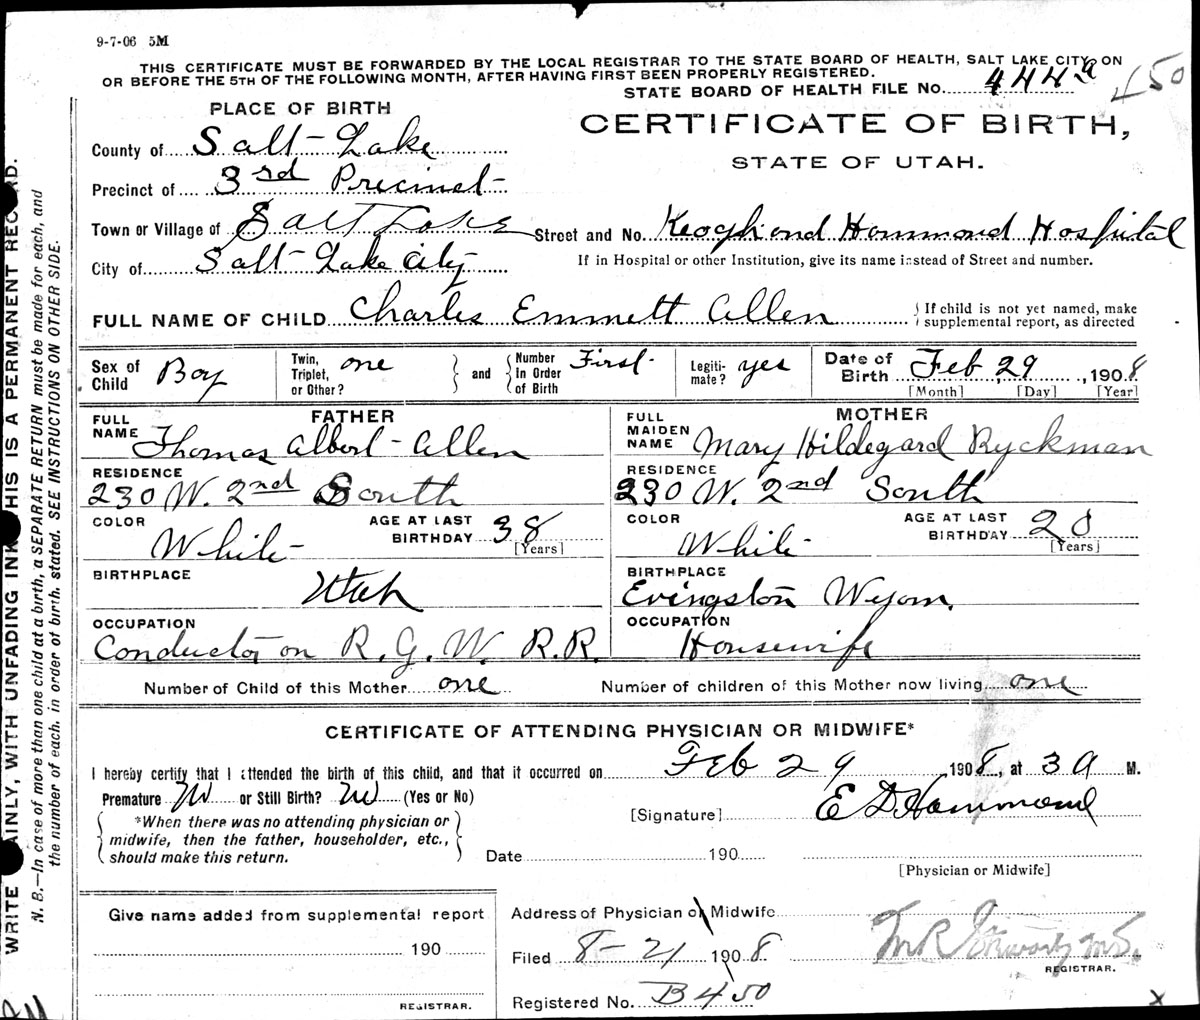 9-7-06 5M
THIS CERTIFICATE MUST BE FORWARDED BY THE LOCAL REGISTRAR TO THE STATE BOARD OF HEALTH, SALT LAKE CITY, ON
OR BEFORE THE 5TH OF THE FOLLOWING MONTH, AFTER HAVING FIRST BEEN PROPERLY REGISTERED.
STATE BOARD OF HEALTH FILE No. 444a 450
PLACE OF BIRTH
CERTIFICATE OF BIRTH,
STATE OF UTAH.
County of Salt Lake
Precinct of 3rd Precinct
Town or Village of Salt Lake Street and No. Keogh and Hammond Hospital
City of Salt Lake City If in Hospital or other Institution, give its name instead of Street and number.
FULL NAME OF CHILD Charles Emmett Allen { If child is not yet named, make
supplemental report, as directed
Sex of Child Boy Twin, Triplet, or Other? one } and { Number In Order of Birth First Legiti-mate? yes Date of Birth Feb 29, 1908
[Month] [Day] [Year]
FATHER MOTHER
FULL NAME Thomas Albert Allen FULL MAIDEN NAME Mary Hildegard Ryckman
RESIDENCE 230 W. 2nd South RESIDENCE 230 W. 2nd South
COLOR White AGE AT LAST BIRTHDAY 38 [Years] COLOR White AGE AT LAST BIRTHDAY 20 [Years]
BIRTHPLACE Utah BIRTHPLACE Evingston Wyom.
OCCUPATION Conductor on R. G. W. R.R. OCCUPATION Housewife
Number of Child of this Mother one Number of children of this Mother now living one
CERTIFICATE OF ATTENDING PHYSICIAN OR MIDWIFE*
I hereby certify that I attended the birth of this child, and that it occurred on Feb 29, 1908, at 3 A M.
Premature or Still Birth? (Yes or No)
*When there was no attending physician or
midwife, then the father, householder, etc.,
should make this return.
[Signature] E D Hammond
Date 190
[Physician or Midwife]
Give name added from supplemental report
190
REGISTRAR.
Address of Physician or Midwife
Filed 8-21 1908.
REGISTRAR.
Registered No. B450
x
WRITE PLAINLY, WITH UNFADING INK. THIS IS A PERMANENT RECORD.
N. B.—In case of more than one child at a birth, a SEPARATE RETURN must be made for each, and
the number of each, in order of birth, stated. SEE INSTRUCTIONS ON OTHER SIDE.